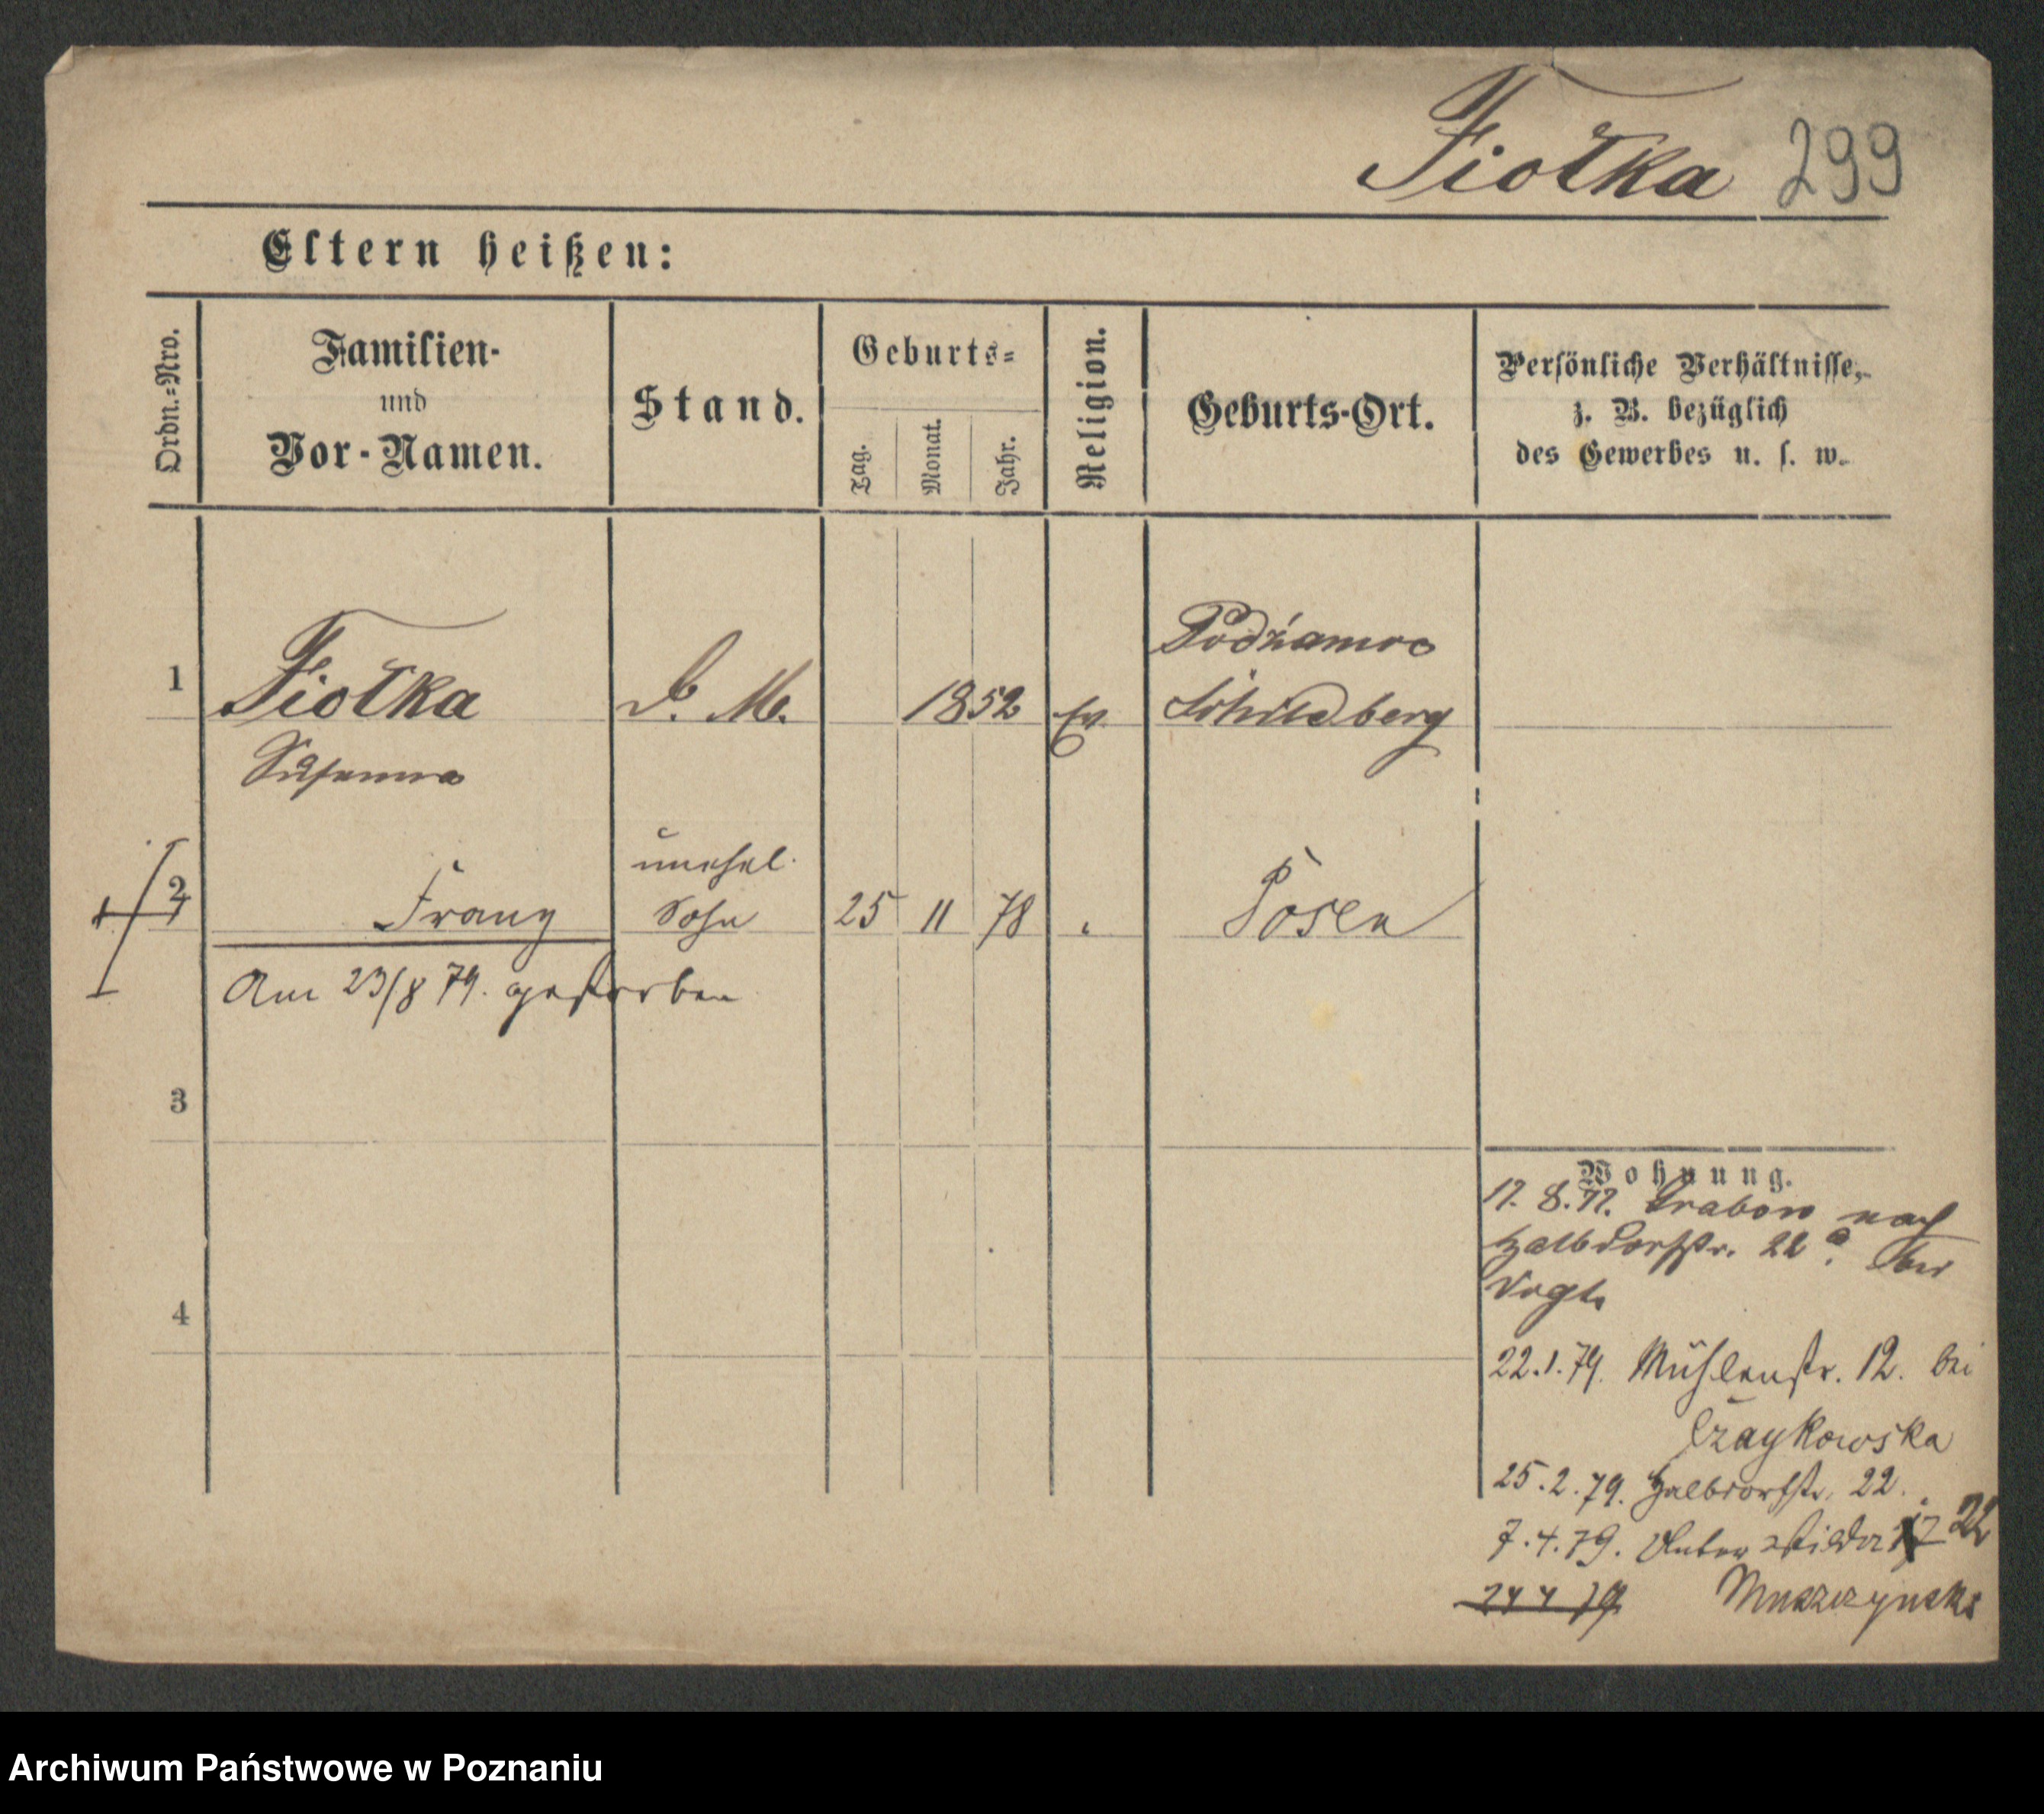 Fiołka 299
Eltern heißen:
Ordn.-Nro.
Familien-
und
Vor-Namen.
Stand.
Geburts-
Tag.
Monat.
Jahr.
Religion.
Geburts-Ort.
Persönliche Verhältnisse,
z. B. bezüglich
des Gewerbes u. s. w.
Podzamce
1 Fiołka D. M. 1852 Ev. Schildberg
Susanna
unehel.
2 Franz Sohn 25 11 78 Posen
Am 23/8 79. gestorben
3
4
Wohnung.
17. 8. 77. Grabow nach
Halbdorfstr. 22a. bei
Vogt
22.1.79. Mühlenstr. 12. bei
Czaykowska
25.2.79. Halbdorfstr. 22.
7.4.79. Unter Wilda 22
24 4 79
Archiwum Państwowe w Poznaniu